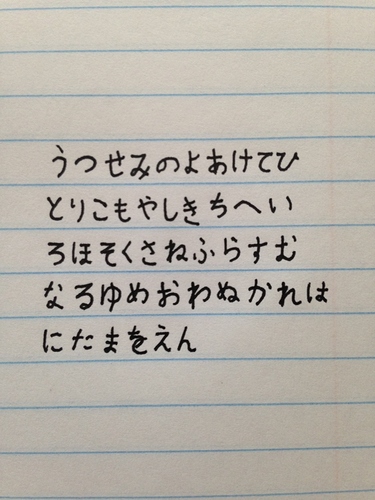 うつせみのよあけてひ
とりこもやしきちへい
ろほそくさねふらすむ
なるゆめおわぬかれは
にたまをえん